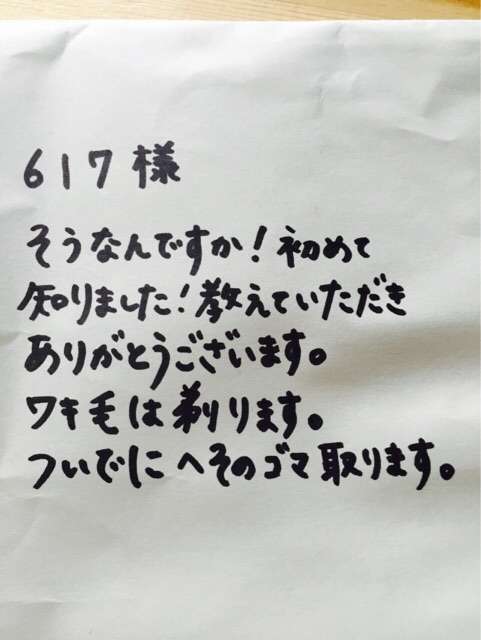 617様
そうなんですか!初めて
知りました!教えていただき
ありがとうございます。
ワキ毛は剃ります。
ついでにへそのゴマ取ります。